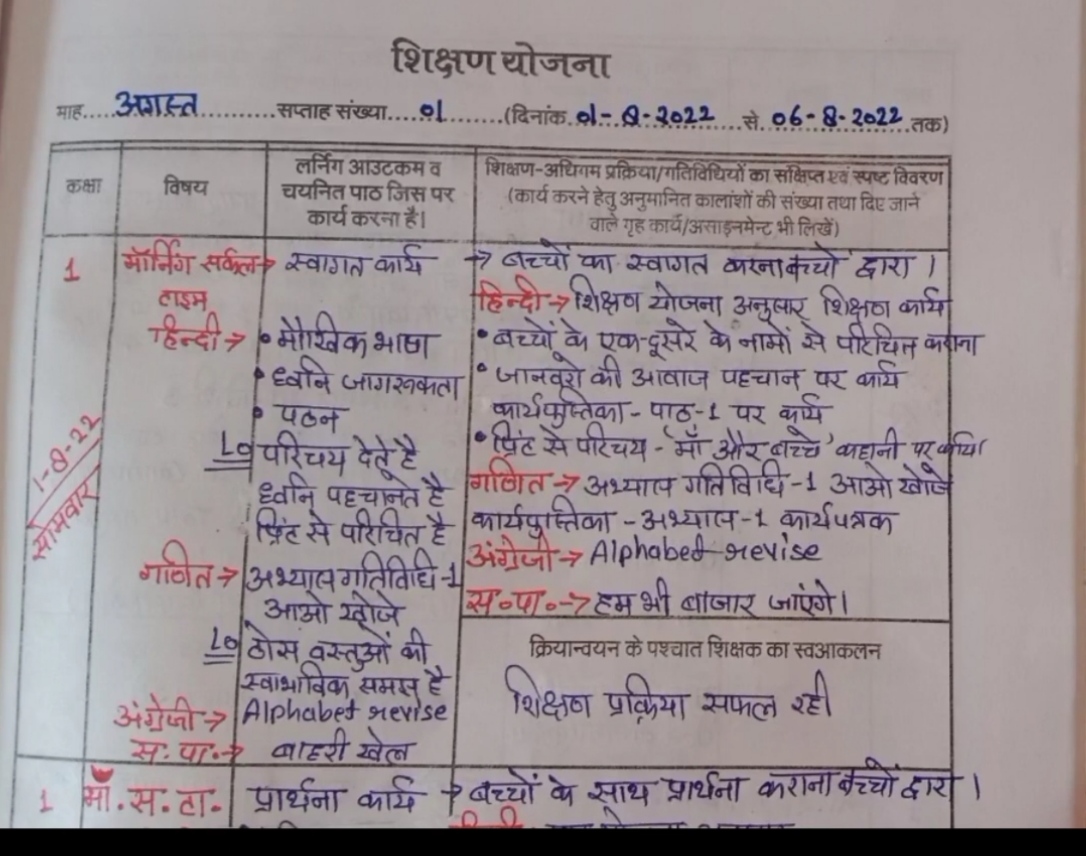 शिक्षण योजना
माह.....अगस्त............सप्ताह संख्या.....01.........(दिनांक 01-8-2022 से 06-8-2022 तक)
कक्षा
विषय
लर्निंग आउटकम व
चयनित पाठ जिस पर
कार्य करना है।
शिक्षण-अधिगम प्रक्रिया/गतिविधियों का संक्षिप्त एवं स्पष्ट विवरण
(कार्य करने हेतु अनुमानित कालांशों की संख्या तथा दिए जाने
वाले गृह कार्य/असाइनमेन्ट भी लिखें)
1
1-8-22
सोमवार
मॉर्निंग सर्कल→ स्वागत कार्य
टाइम
हिन्दी → • मौखिक भाषा
• ध्वनि जागरूकता
• पठन
Lo परिचय देते है
ध्वनि पहचानते है
प्रिंट से परिचित है
गणित → अभ्यास गतिविधि-1
आओ खोजे
Lo ठोस वस्तुओं की
स्वाभाविक समझ है
अंग्रेजी → Alphabet revise
स.पा.→ बाहरी खेल
→ बच्चों का स्वागत करना बच्चों द्वारा।
हिन्दी→ शिक्षण योजना अनुसार शिक्षण कार्य
• बच्चों के एक-दूसरे के नामों से परिचित कराना
• जानवरो की आवाज पहचान पर कार्य
कार्यपुस्तिका - पाठ-1 पर कार्य
• प्रिंट से परिचय - 'माँ और बच्चे' कहानी पर कार्य।
गणित → अभ्यास गतिविधि-1 आओ खोजे
कार्यपुस्तिका - अभ्यास-1 कार्यपत्रक
अंग्रेजी → Alphabet revise
स॰पा॰→ हम भी बाजार जाएंगे।
क्रियान्वयन के पश्चात शिक्षक का स्वआकलन
शिक्षण प्रक्रिया सफल रही
1 माॅ.स.टा. प्रार्थना कार्य → बच्चों के साथ प्रार्थना कराना बच्चों द्वारा।